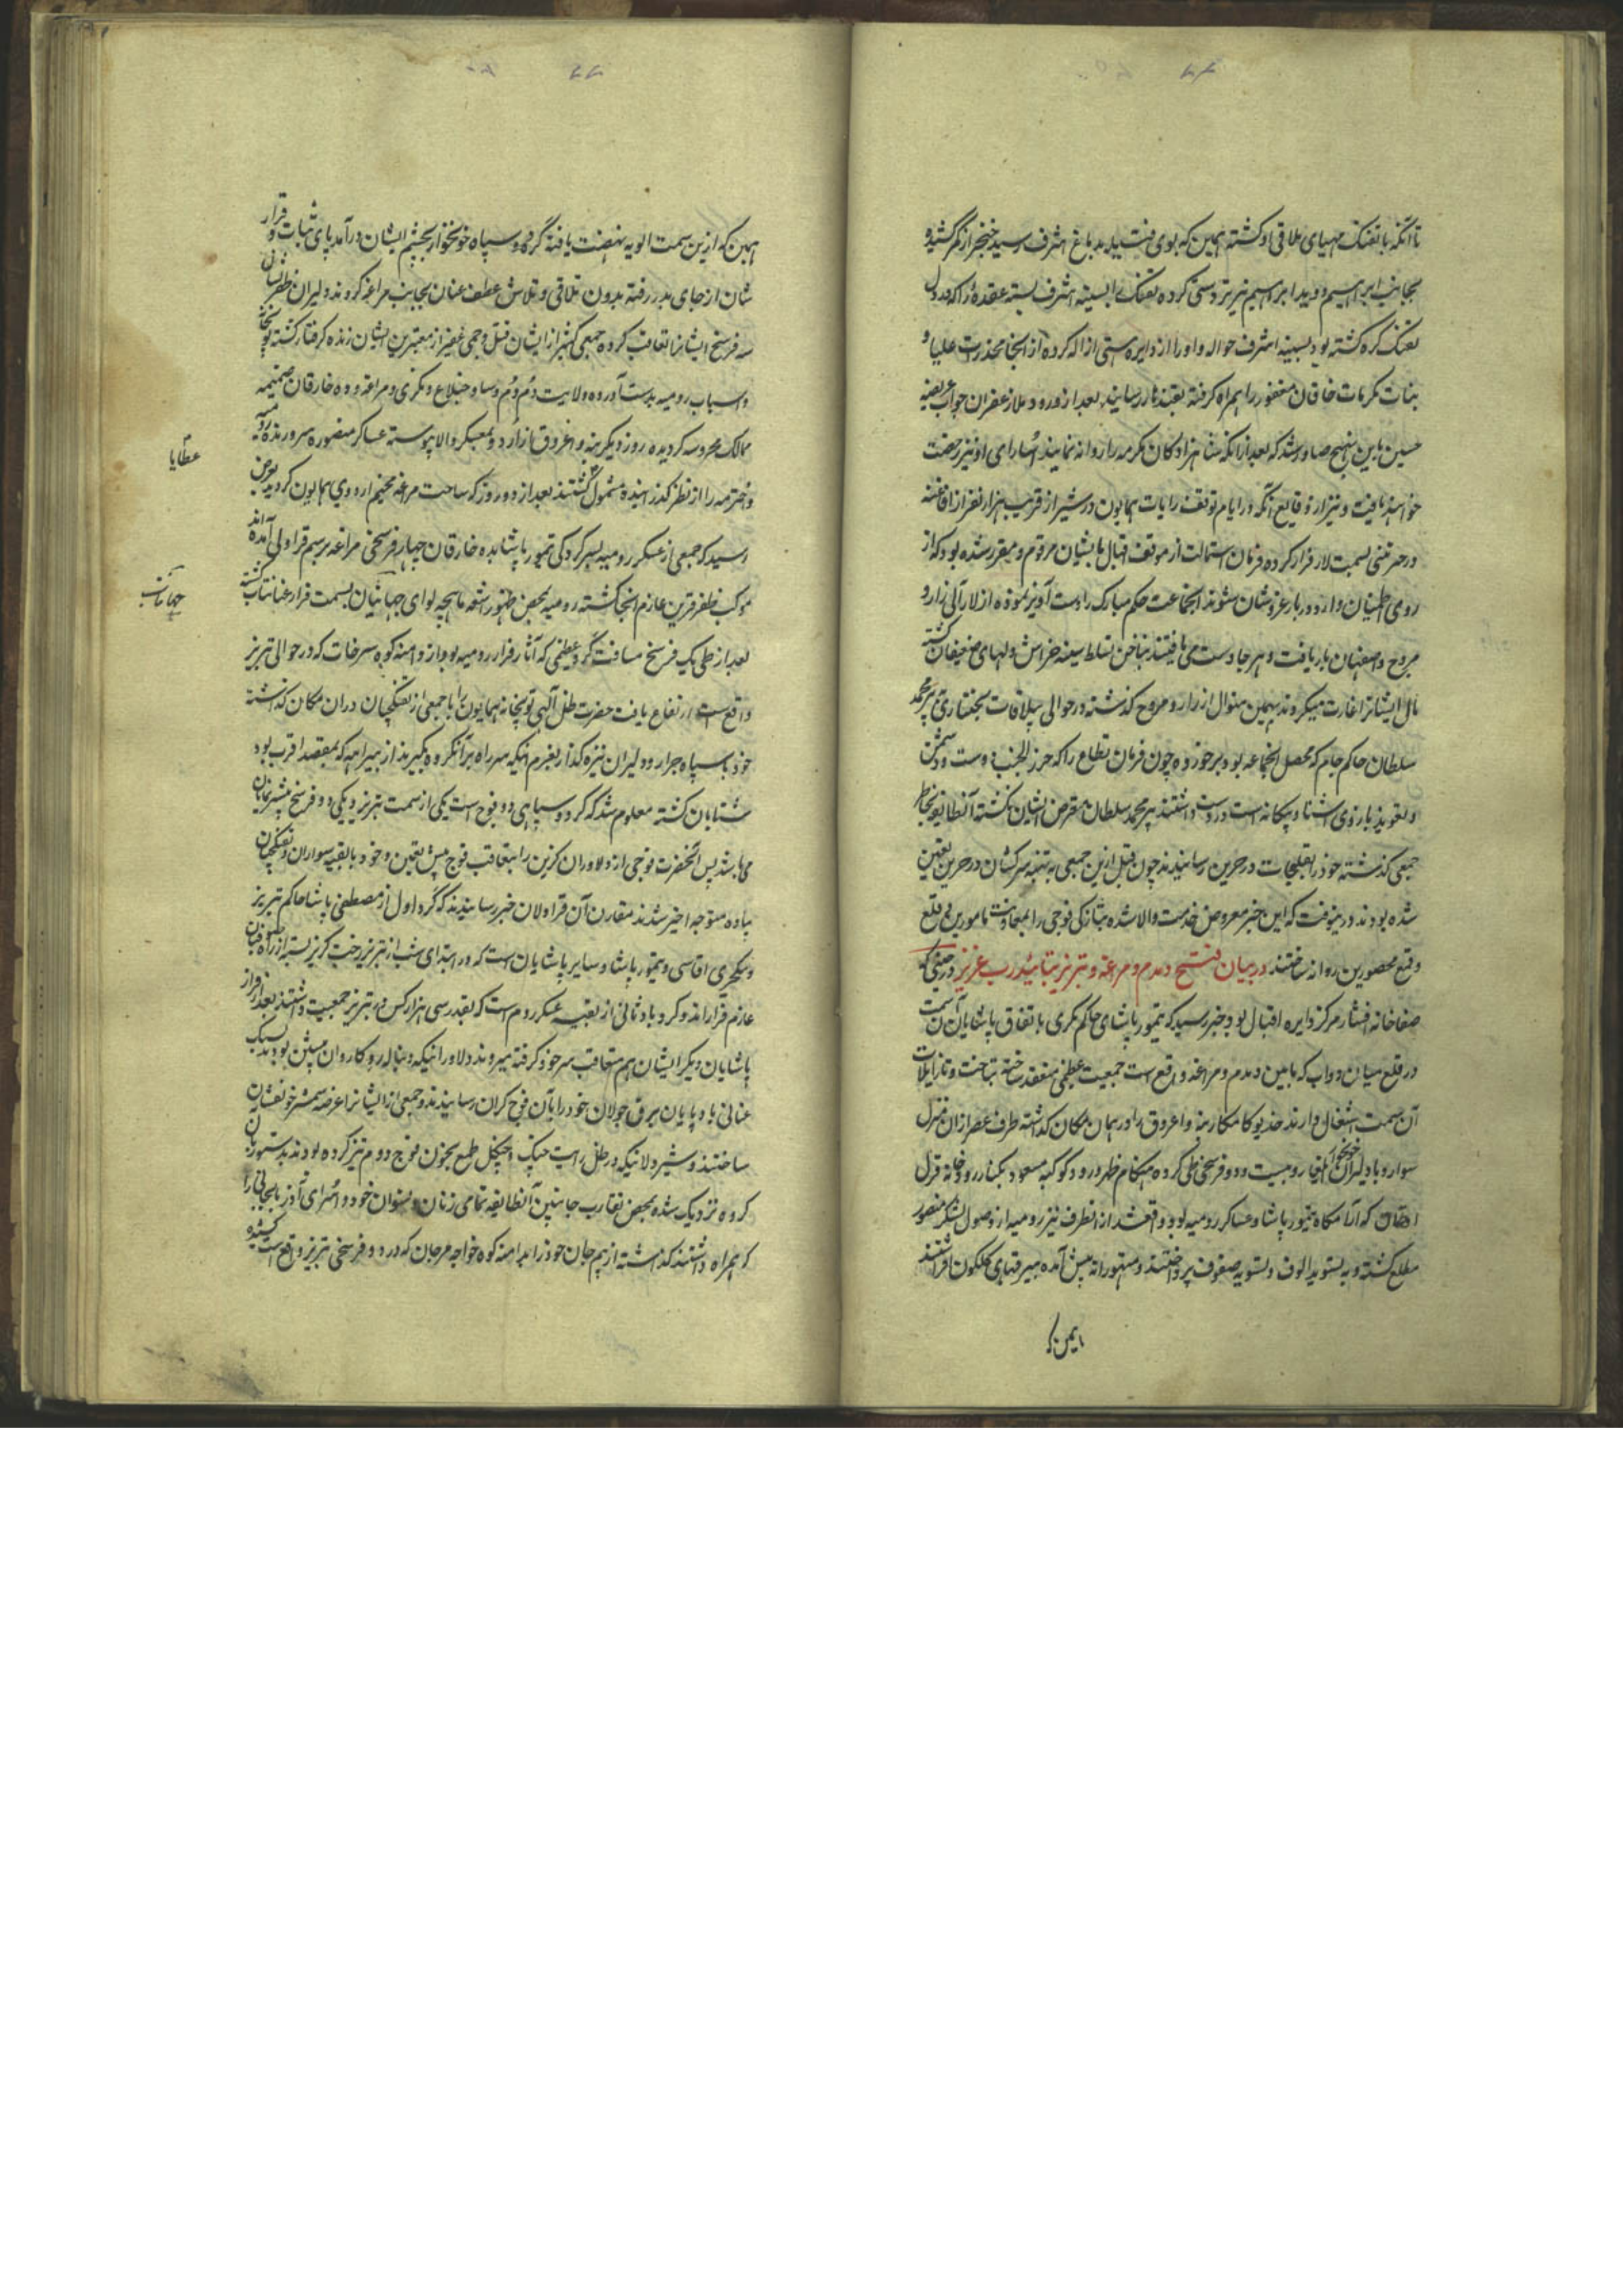 تا آنکه با تفنک مهیای ملاقی او کشته همین که بوی فتنه بدید باغ اشرف رسید خنجر از کمر کشیده
بجانب ابراهیم دوید ابراهیم نیز تردستی کرده تفنک را بسینه اشرف بسته عقده را که در دل
تفنک کره کشته بود بسینه اشرف حواله و او را از دایره هستی ازاله کرده از آنجا مخدرات علیا و
بنات مکرمات خاقان مغفور را همراه کرفته بقندهار رسانید بعد از ورود ملا زعفران جواب عریضه
حسین باین نهج صادر شد که بعد از آنکه شاهزادکان مکرمه را روانه نمایند اسارای او نیز رخصت
خواهند یافت و نیز از وقایع آنکه در ایام توقف رایات همایون در شیراز قریب هزار نفر از افاغنه
در حرکتی بسمت لار فرار کرده فرمان استمالت از موقف اقبال بایشان مرقوم و مقرر شده بود که از
روی اطمینان وارد دربار عزوشان شوند آنجماعت حکم مبارک را دست آویز نموده از لار الی زار و
مروح و اصفهان بار یافت و هر جا دست می یافتند بناخن تسلط سینه خراش دلهای ضعیفان کشته
مال ایشانرا غارت میکردند بهمین منوال از زار و مروح کذشته در حوالی ییلاقات بختیاری پیرمحمد
سلطان حاکم جام که محصل آنجماعه بود برخورده چون فرمان مطاع را که حرز الجنب دوست و دشمن
و تعویذ بازوی آشنا و بیکانه است در دست داشتند پیرمحمد سلطان متعرض ایشان نکشته آنطایفه بخاطر
جمعی کذشته خود را بقلیجات درحرین رسانیدند چون قبل ازین جمعی به تنبیه سرکشان درحرین تعیین
شده بودند درینوقت که این خبر معروض خدمت والا شده بتازکی فوجی را بمعاونت مامورین بی قلع
و قمع محصورین روانه ساختند در بیان فتح دمدم و مراغه و تبریز بتائید رب عزیز در حینی که
صفاخانه افشار مرکز دایره اقبال بود خبر رسید که تیمور پاشای حاکم مکری باتفاق پاشایان آن سمت
در قلع میان دواب که مابین دمدم و مراغه واقع است جمعیت عظیمی منعقد ساخته بتاخت و تاز ایلات
آن سمت اشتغال دارند خدیو کامکار بنه و اغروق را در همان مکان کذاشته طرف عصر از آن منزل
سوار و با دلیران خونخوار ایلغار و بیست و دو فرسخ طی کرده هنکام ظهر ورود کوکبه مسعود بکنار رودخانه قزل
اوزن که آرامکاه تیمور پاشا و عساکر رومیه بود واقع شد از انطرف نیز رومیه از وصول لشکر منصور
مطلع کشته و به تسوید الوف و تسویه صفوف پرداختند و متهورانه پیش آمده بیرقهای کلکون افراشتند
ایمن که
همین که ازین سمت الویه نهضت یافته کرد سپاه خونخوار بچشم ایشان درآمد پای ثبات و قرار
شان از جای بدر رفته بدون تلاقی و تلاش عطف عنان بجانب مراغه کردند دلیران ظفرنشان
سه فرسخ ایشانرا تعاقب کرده جمعی کثیر از ایشان قتل و جمی غفیر از معتبرین ایشان زنده کرفتار کشته توپخانه
و اسباب رومیه بدست آورده ولایت دم دم و ساوجبلاغ و مکری و مراغه و ده خارقان ضمیمه
ممالک محروسه کردیده روز دیکر بنه و اغروق نیز از اردو بمعسکر والا پیوسته عساکر منصوره سر و زنده رومیه
و اخترمه را از نظر کذرانیده مشمول کشتند بعد از دو روز که ساحت مراغه مخیم اردوی همایون کردید بعرض
رسید که جمعی از عسکر رومیه بسرکردکی تیمور پاشا بده خارقان چهار فرسخی مراغه برسم قراولی آمده اند
موکب ظفر قرین عازم آنجا کشته رومیه بمحض ظهور اشعه ماهچه لوای جهانتاب بسمت فرار عنانتاب کشته
بعد از طی یک فرسخ مسافت کرد عظیمی که آثار فرار رومیه بود از دامنه کوه سرخاب که در حوالی تبریز
واقع است ارتفاع یافت حضرت ظل آلهی توپخانه همایون را با جمعی از تفنکچیان در آن مکان کذاشته
خود با سپاه جرار و دلیران نیزه کذار بعزم انیکه سر راه بر آنکروه بکیرند از بیراهه که بمقصد اقرب بود
شتابان کشته معلوم شد که کرد و سپاهی دو فوج است یکی از سمت تبریز و یکی دو فرسخ پیشتر نمایان
می باشد پس آنحضرت فوجی از دلاوران کزین را بتعاقب فوج پیش تعیین و خود با بقیه سواران و تفنکچیان
پیاده متوجه اخیر شدند مقارن آن قراولان خبر رسانیدند که کرد اول از مصطفی پاشا حاکم تبریز
و ینکچری آقاسی و تیمور پاشا و سایر پاشایان است که در ابتدای شب از تبریز رخت کریز بسته از راه
عازم فرار اند و کرد ثانی از بقیه عسکر روم است که بقدر سی هزار کس در تبریز جمعیت داشتند بعد از فرار
پاشایان دیکر ایشان هم متعاقب سر خود کرفته میروند دلاورانیکه دنباله رو کاروان پیش بودند سبک
عنانی باد پایان برق جولان خود را بآن فوج کران رسانیدند و جمعی از ایشانرا عرضه شمشیر خونفشان
ساختند و شیردلانیکه در ظل رایت جنک طمع بخون فوج دوم تیز کرده بودند بدستور بآن
کروه نزدیک شده بمحض تقارب جانبین آنطایفه تمامی زنان و نسوان خود و اسرای آذربایجانی را
که همراه داشتند کذاشته از بیم جان خود را بدامنه کوه خواجه مرجان که در دو فرسخی تبریز واقع است کشیده
عطایا
جهانتاب